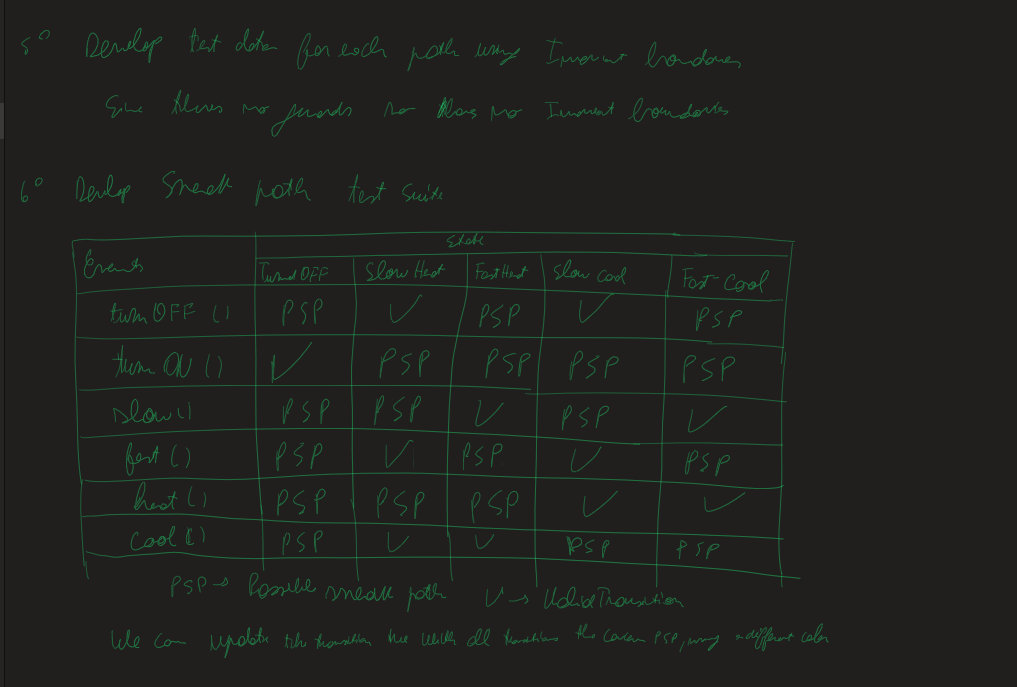 5° Develop test data for each path using Invariant boundaries
Since theres no guards nor theres no Invariant boundaries
6° Develop Sneak path test suite
State
Events Turned OFF Slow Heat Fast Heat Slow Cool Fast-Cool
turn OFF () PSP ✓ PSP ✓ PSP
turn ON () ✓ PSP PSP PSP PSP
slow() PSP PSP ✓ PSP ✓
fast () PSP ✓ PSP ✓ PSP
heat () PSP PSP PSP ✓ ✓
cool () PSP ✓ ✓ PSP PSP
PSP → Possible sneak path ✓ → Valid Transition
We can update the transition tree with all transitions the PSP, using a different color